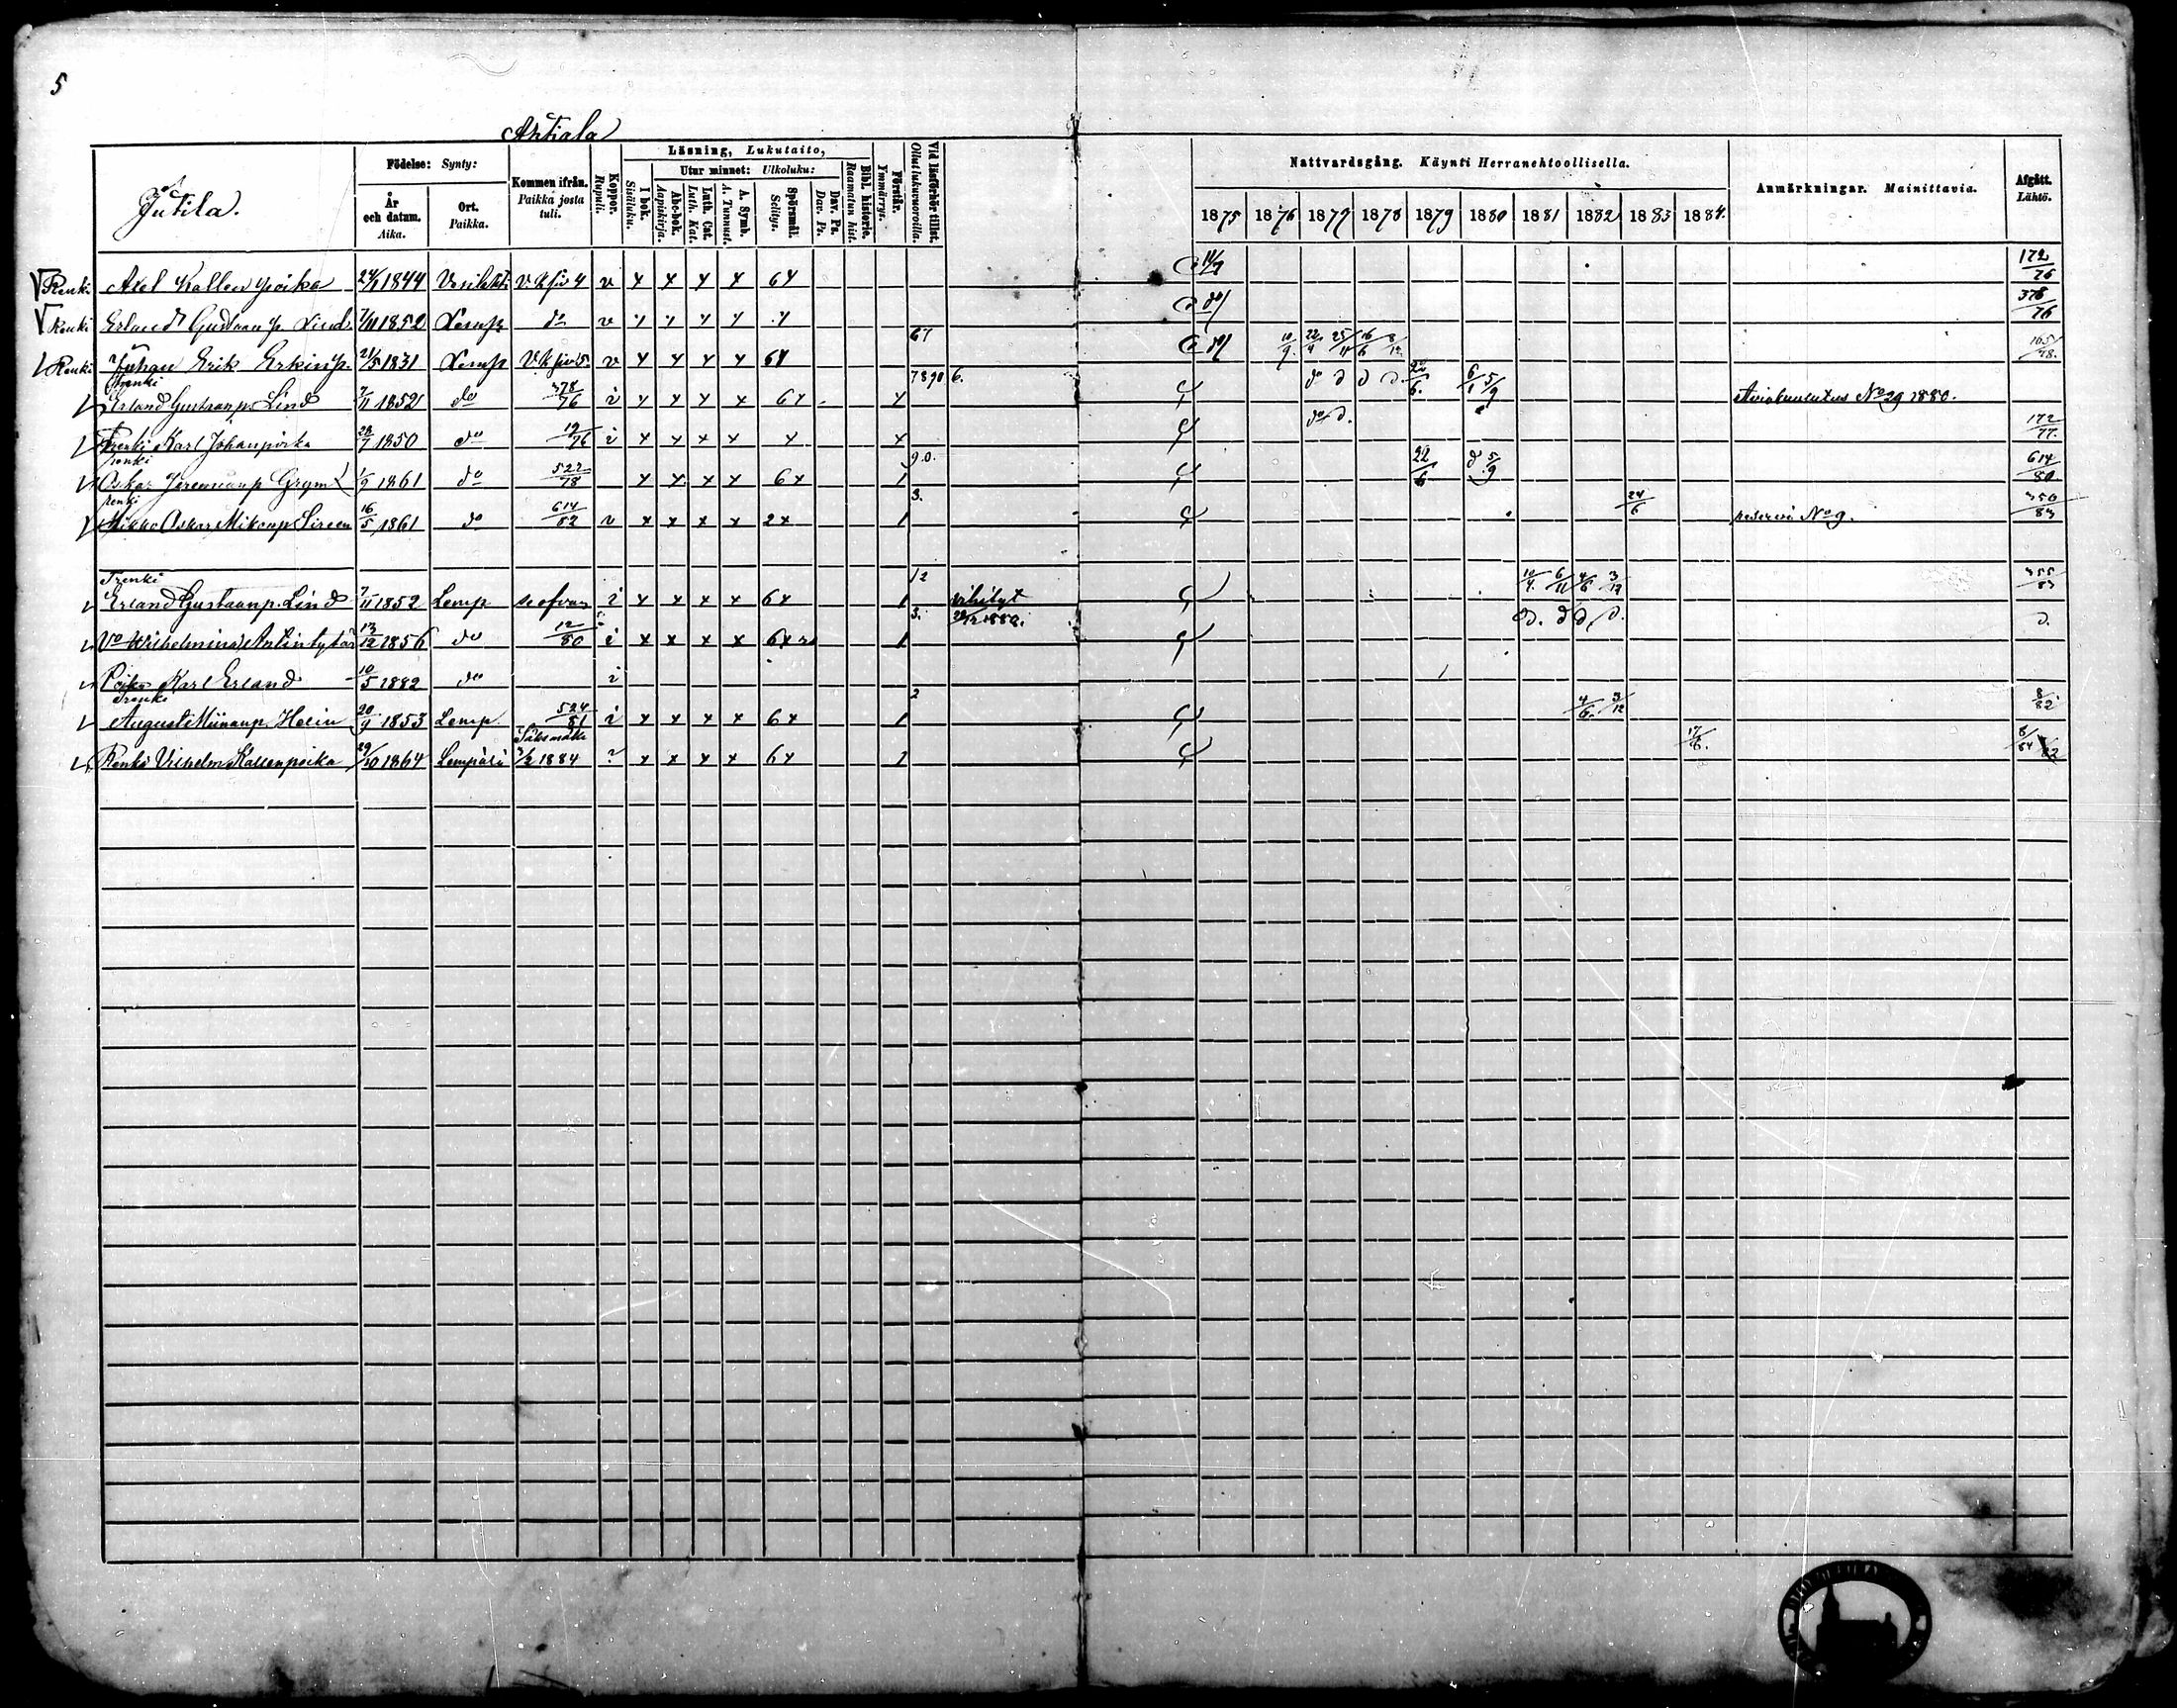 5
Antiala
Jutila.
Födelse: Synty:
År och datum. Aika.
Ort. Paikka.
Kommen ifrån. Paikka josta tuli.
Koppor. Rupuli.
Läsning, Lukutaito,
I bok. Sisäluku.
Utur minnet: Ulkoluku:
Abc-bok. Aapiskirja.
Luth. Cat. Luth. Kat.
A. Symb. A. Tunnust.
Spörsmål. Selitys.
Dav. Ps. Dav. Ps.
Bibl. historie. Raamatun hist.
Förstår. Ymmärrys.
Vid läsförhör tillst. Ollut lukuvuoroilla.
Nattvardsgång. Käynti Herranehtoollisella.
1875 1876 1877 1878 1879 1880 1881 1882 1883 1884.
Anmärkningar. Mainittavia.
Afgått. Lähtö.
Renki Axel Kallen poika 24/1 1844 Vesilahti v x x x x 6x 172/76
Renki Erland Gustaan p. Lind. 7/11 1852 Lemp do v x x x x x do 378/76
Renki Juhan Erik Erkinp. 21/5 1831 Lemp v x x x x 6x 67 do 10/9 22/4 25/11 16/6 8/12 165/78.
Renki Erland Gustaanp. Lind 7/11 1852 do 378/76 i x x x x 6x x 7890 6. do d d d 22/6. 6/1 5/9 No 29 1880.
Renki Karl Johanpoika 28/7 1850 do 19/76 i x x x x x x do d. 172/77.
renki Oskar Grym 1/9 1861 do 522/78 x x x x 6x 1 90. 22/6 d 5/9 614/80
renki Oskar Mikonp. Sireen 16/5 1861 do 614/82 v x x x x 2x 1 3. 24/6 reservi No 9. 350/83
renki Erland Gustaanp. Lind 7/11 1852 Lemp i x x x x 6x 1 12 vihityt 10/4 6/11 4/6 3/12 355/83
Vo Wilhelmina Antintytär 13/12 1856 do 12/80 i x x x x 6x 1 3. 1880. d. d d, d. d.
Poika Karl Erland 10/5 1882 do i
renki August Helin 20/9 1853 Lemp. 524/81 i x x x x 6x 1 2 4/6. 3/12 8/82
Renki Vilhelm Kallenpoika 29/10 1864 Lempäälä Sääksmäki 3/2 1884 x x x x 6x 1 17/6. 8/84